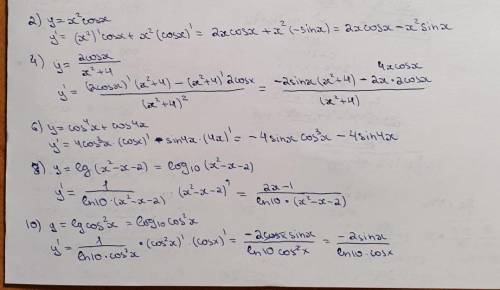 2) y = x² cosx
y' = (x²)' cosx + x² (cosx)' = 2x cosx + x² (-sinx) = 2x cosx - x² sinx
4) y = 2cosx / x²+4
4x cosx
y' = (2cosx)' (x²+4) - (x²+4)' 2cosx / (x²+4)² = -2sinx (x²+4) - 2x · 2cosx / (x²+4)
6) y = cos⁴x + cos4x
y' = 4cos³x · (cosx)' - sin4x · (4x)' = -4 sinx cos³x - 4 sin4x
8) y = lg (x²-x-2) = log₁₀ (x²-x-2)
y' = 1 / ln10 · (x²-x-2) · (x²-x-2)' = 2x-1 / ln10 · (x²-x-2)
10) y = lg cos²x = log₁₀ cos²x
y' = 1 / ln10 · cos²x · (cos²x)' · (cosx)' = -2cosx sinx / ln10 cos²x = -2sinx / ln10 · cosx